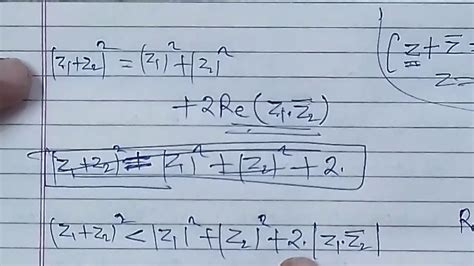 |z₁+z₂|² = |z₁|² + |z₂|² (z + z̄ =
z =
+ 2Re(z₁.z̄₂)
|z₁+z₂|² = |z₁|² + |z₂|² + 2.
|z₁+z₂|² < |z₁|² + |z₂|² + 2.|z₁.z̄₂| R